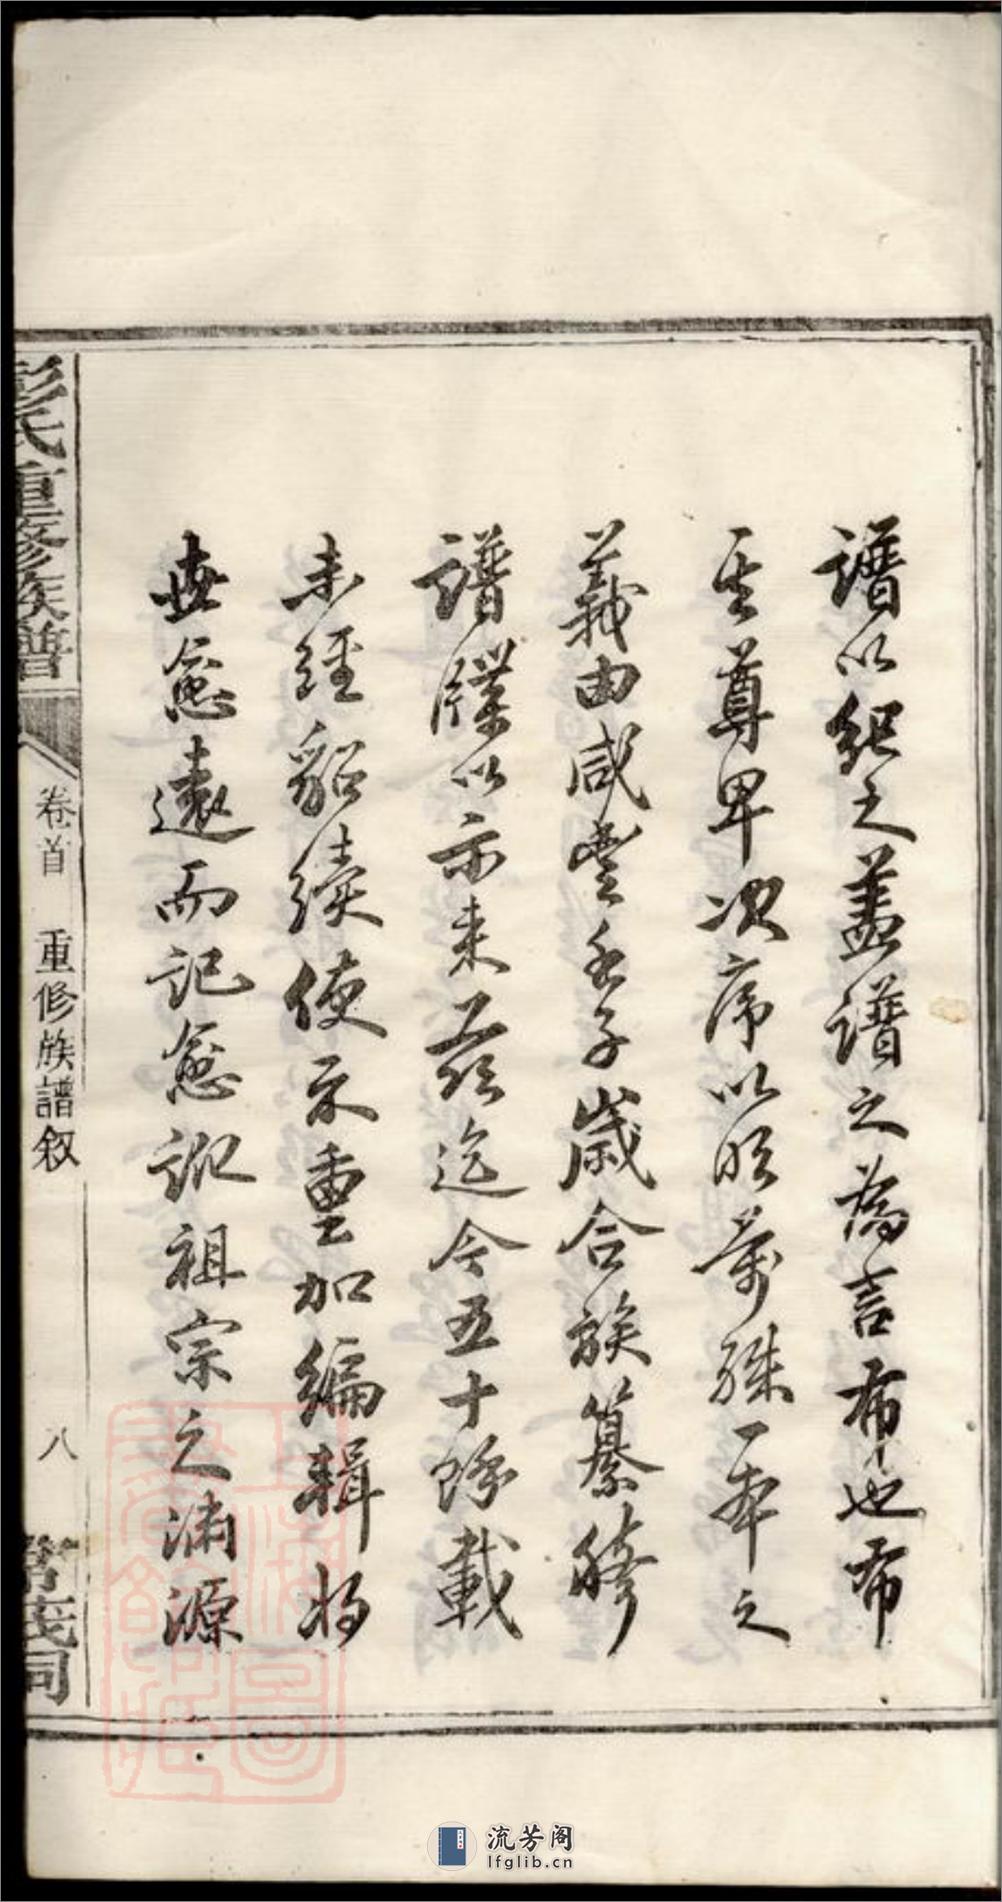 譜以紀之蓋譜之為言布也布
其尊卑次序以昭萬殊一本之
義由咸豐壬子歲合族纂脩
譜牒以示來茲迄今五十餘載
未經貂續使不重加編輯將
世愈遠而記愈訛祖宗之淵源
彭氏重修族譜
卷首 重修族譜叙 八
上海圖書館藏
流芳阁
lfglib.cn